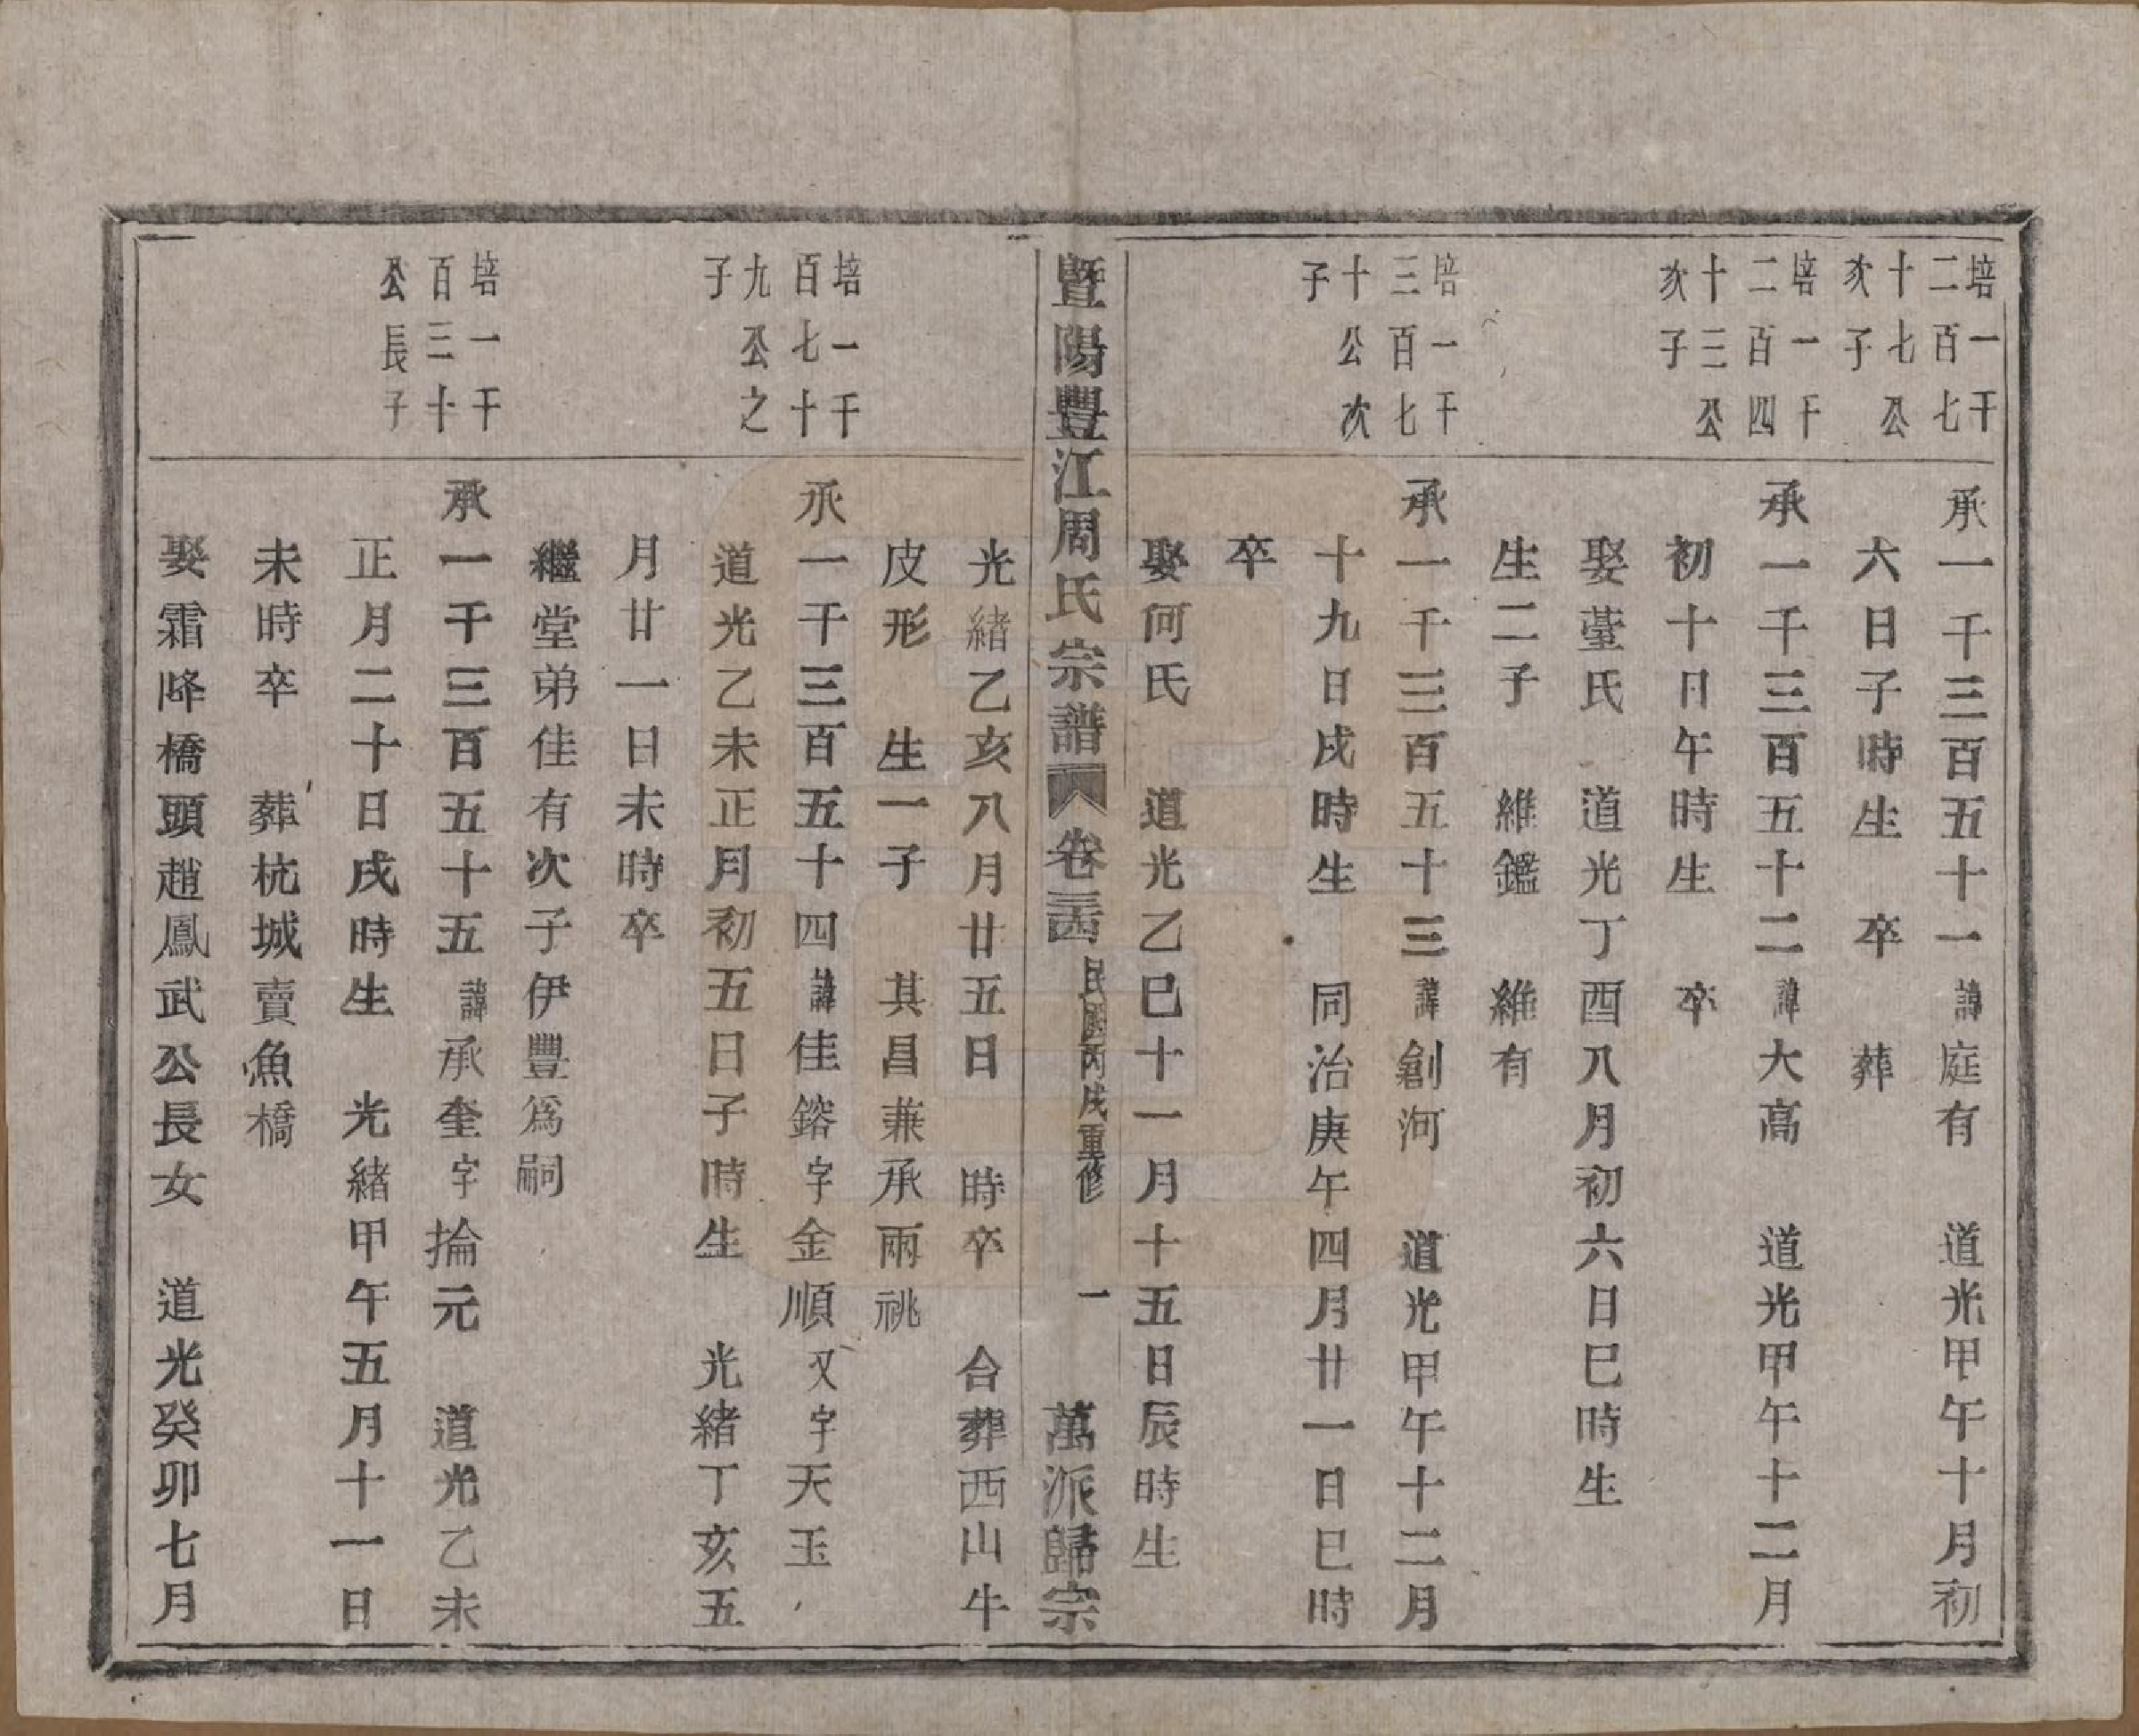 培一千
二百七
十七公
次子
承一千三百五十一諱庭有　道光甲午十月初
六日子時生　卒　葬
培一千
二百四
十三公
次子
承一千三百五十二諱大高　道光甲午十二月
初十日午時生　卒
娶臺氏　道光丁酉八月初六日巳時生
生二子　維鑑　維有
培一千
三百七
十公次
子
承一千三百五十三諱創河　道光甲午十二月
十九日戌時生　同治庚午四月廿一日巳時
卒
娶何氏　道光乙巳十一月十五日辰時生
暨陽豐江周氏宗譜　卷三西　民國丙戌重修　一　萬派歸宗
光緒乙亥八月廿五日　時卒　合葬西山牛
皮形　生一子　其昌兼承兩祧
培一千
百七十
九公之
子
承一千三百五十四諱佳鎔字金順又字天玉
道光乙未正月初五日子時生　光緒丁亥五
月廿一日未時卒
繼堂弟佳有次子伊豐爲嗣
培一千
百三十
公長子
承一千三百五十五諱承奎字掄元　道光乙未
正月二十日戌時生　光緒甲午五月十一日
未時卒　葬杭城賣魚橋
娶霜降橋頭趙鳳武公長女　道光癸卯七月